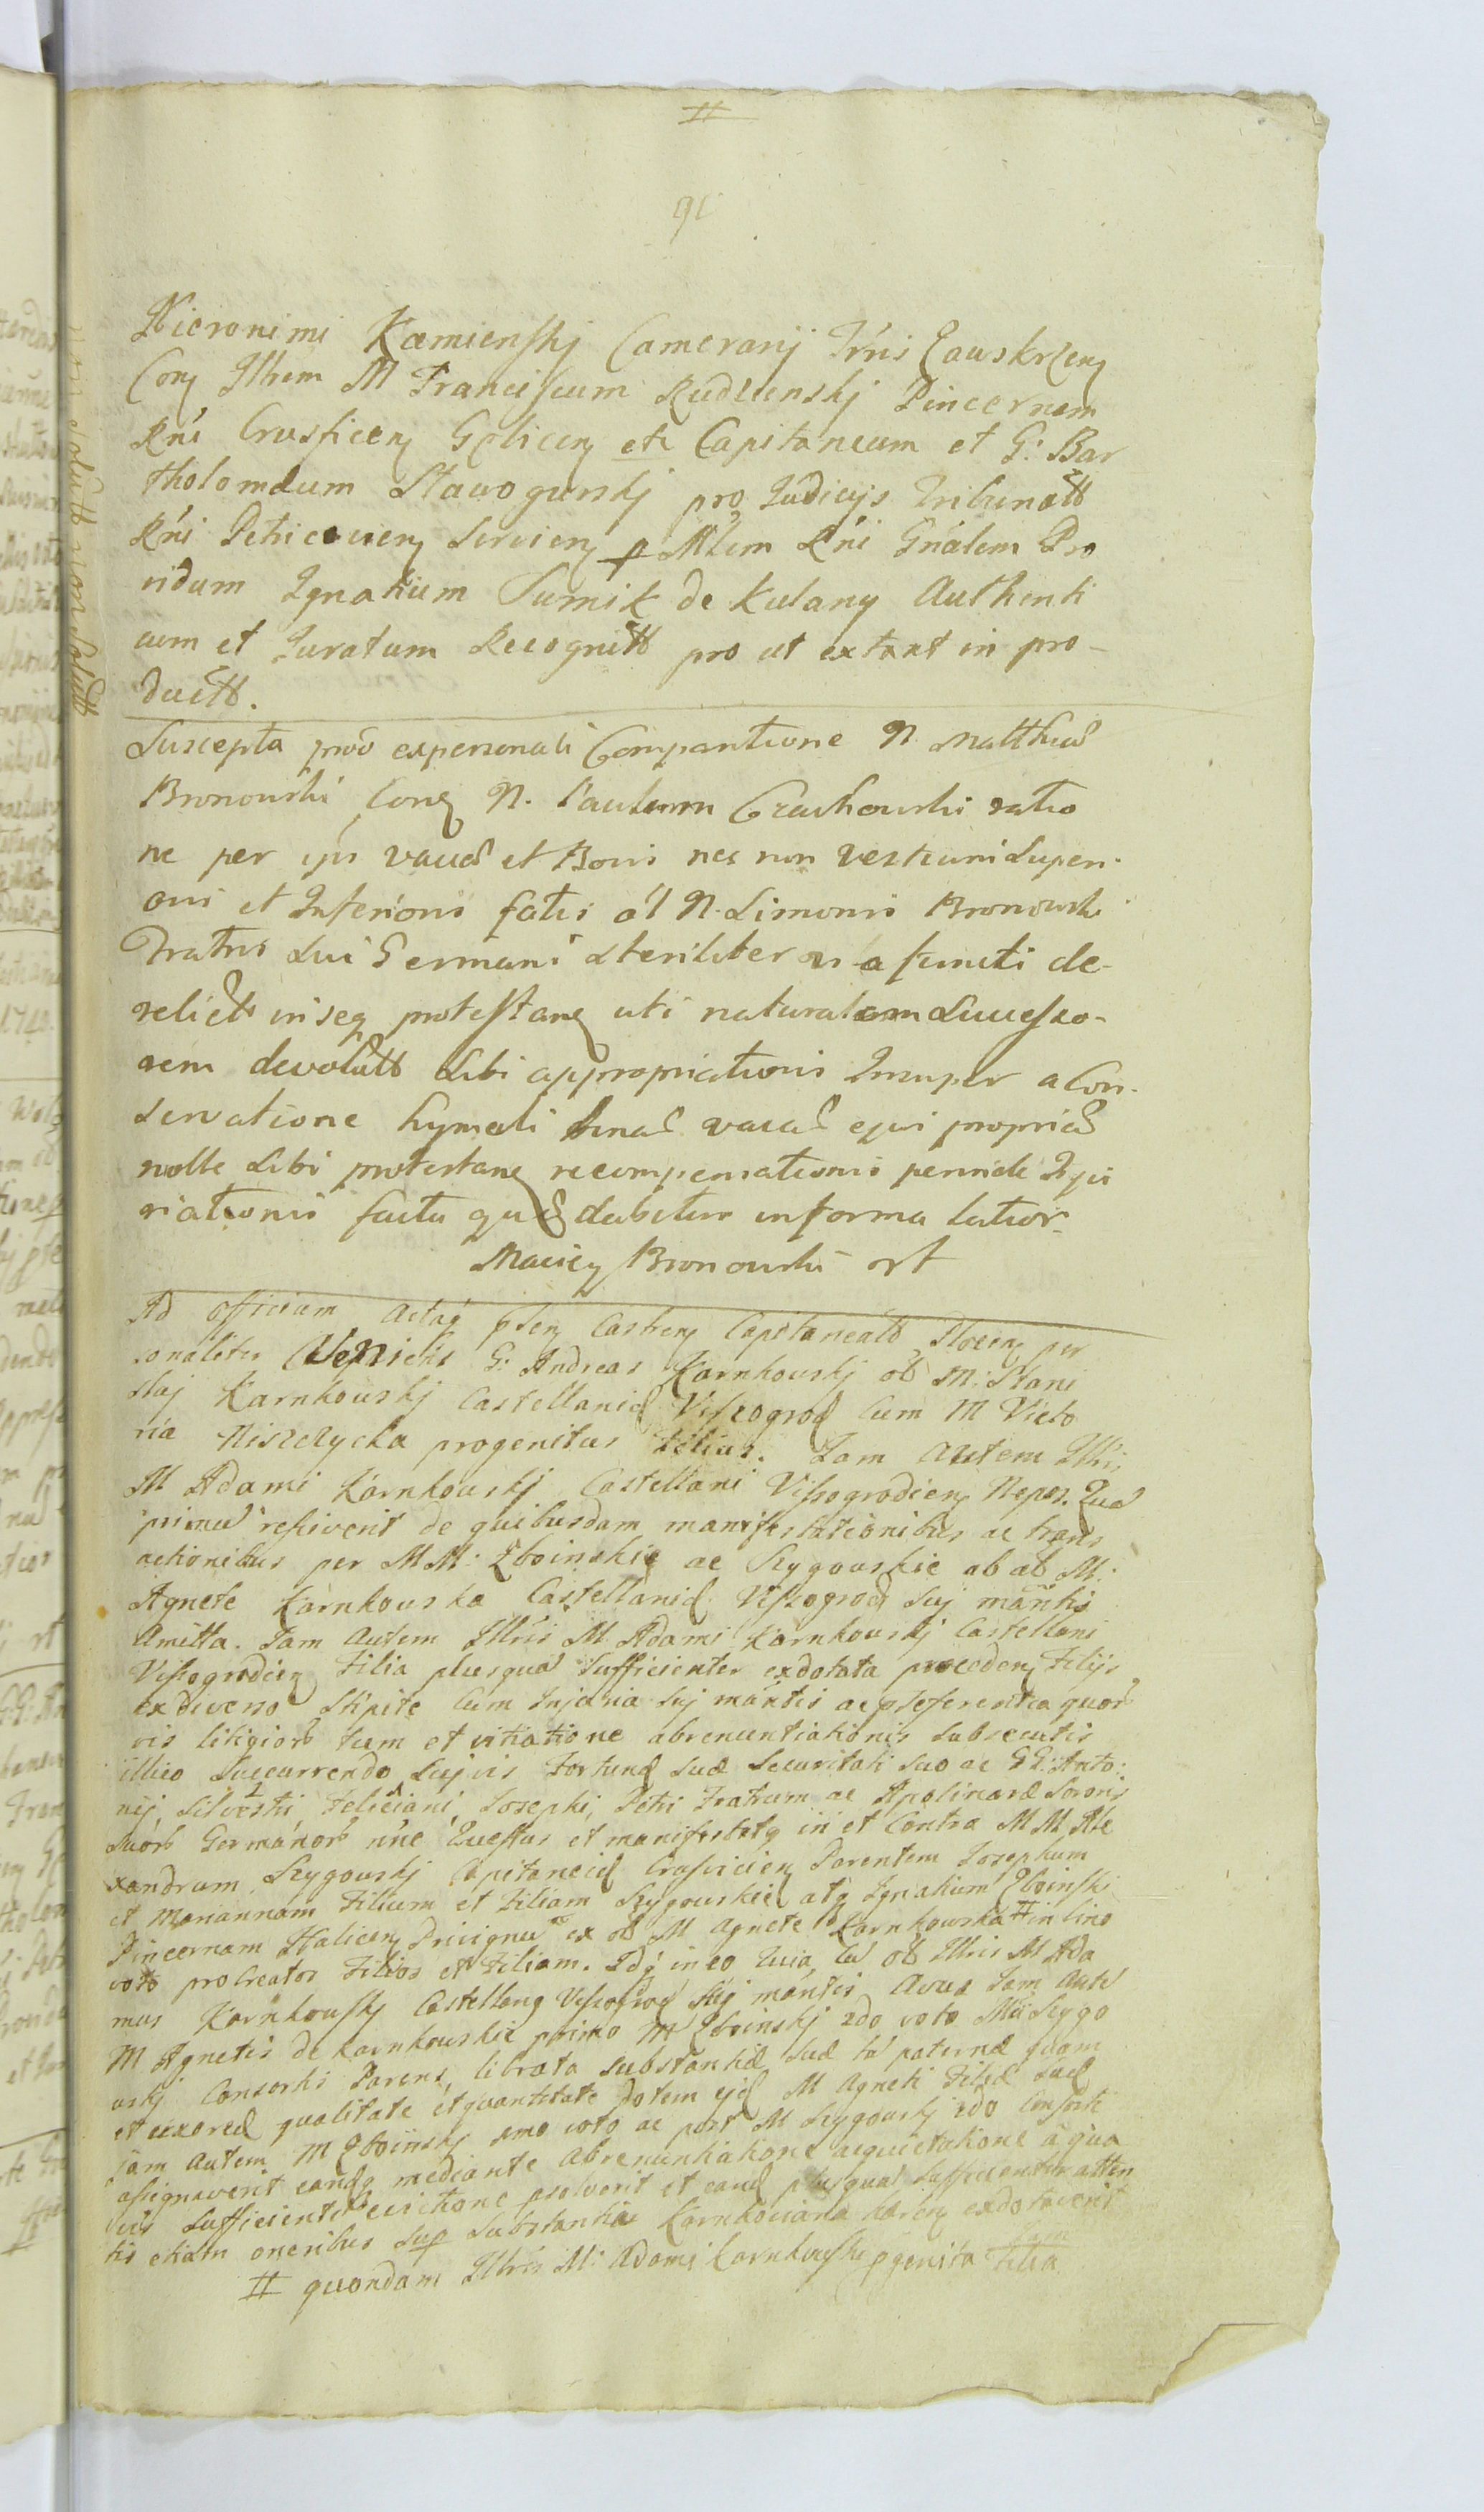 II
91
Hieronimi Kamienskj Cameranij Trris Zawskrzen
Con Illrem M Franciscum Rudzienskj Pincernam
Rni Crusficen Golicen etc Capitaneum et G: Bar
tholomæum Stawogurskj pro Judicijs Tribunalts
Rni Petricovien Servien p Mlem Rni Gnálem Pro
vidum Ignatium Surnik de Kulany Authenti
cum et Juratum Recognitt pro ut extant in pro-
ductt.
Suscepta pro expersonali Comparitione N. Matthæi
Bronowski Con N. Paulum Czachowski ratio
ne per ips vaccæ et Bovis nec non vestium Superi
oris et Inferioris fatis ol N. Simonis Bronowski
Fratris Sui Germani steriliter a functi de-
relict in seq protestan uti naturalem Successo-
rem devolutt Sibi appropriationis Insuper a Con-
servatione hyemali binas vacas ejus proprias
nolle Sibi protestan recompensationis perinde Inju
riationis facta quæ debetur in forma latior
Maciey Bronowski rt
Ad officium Actaq psen Castren Capitanealt Plocen per
sonaliter Veniens G: Andreas Karnkowskj ol M: Stani
slaj Karnkowskj Castellanid Vissogrod Cum M Victo
ria Niszczycka progenitus Filius. Jam autem Illris
M Adami Karnkowskj Castellani Vissogrodien Nepos. Qua
primu resciverit de quibusdam manifestationibus ac trans
actionibus per MM: Zboinskie ac Szygowskie ab ol M:
Agnete Karnkowska Castellanid Vissogrod suj manti
Amitta. Jam Autem Illris M Adami Karnkowskj Castellani
Vissogrodien Filia plusqua Sufficienter exdotata proceden Filijs
ex diverso Stipite Cum Injuria suj mantis ac pseferentia quor
vis litigiorb tum et vitiatione abrenuntiationis subsecutis
illico Succurrendo Sujvis Fortunæ suæ Securitati suo ac GG: Anto:
nij, Silvestri, Feliciani, Josephi, Petri Fratrum ac Apolinaræ Sororis
Suorb Germanorb nne Questus et manifestatq in et Contra M M Ale
xandrum Szygowskj Capitaneid Crusvicien Parentem Josephum
et Mariannam Filium et Filiam Szygowskie atq Ignatium Zboinski
Pincernam Halicen Privignu ex ol M Agnete Karnkowska II in bino
voto proCreatos Filios et Filiam. Idq in eo Quia, Cu ol Illris M Ada
mus Karnkowskj Castellanq Vissogrod Suj mantis Avus Jam Aute
M Agnetis de Karnkowskie primo M Zboinskj 2do voto M Szygo
wskj Consortis Parens, librata substantiæ suæ ta paternæ qdam
et uxoreæ qualitate et quantitate dotem ejd M Agneti Filiæ suæ
jam autem M Zboinskj imo voto ac post M Szygowskj 2do Consorti
assignaverit eandq mediante Abrenuntiatione acquietatione a qua
vis Sufficienti evictione psolverit et eand plusqua Sufficienter atten
tis etiam oneribus sup Substantia Karnkoviana haren exdotaverit
Jam
II quondam Illris M: Adami Karnkowski pgenita Filia